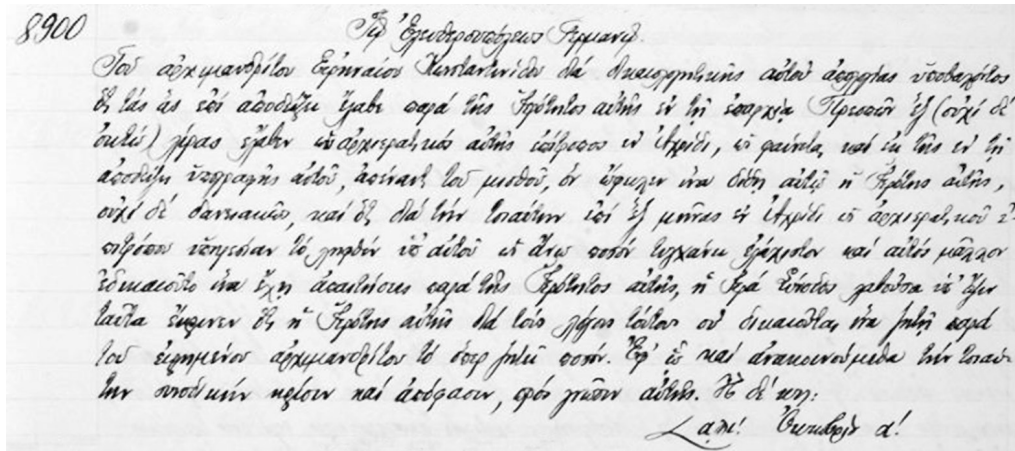 8900
Τῷ Ἐλευθερουπόλεως Γερμανῷ.
Τοῦ ἀρχιμανδρίτου Εἰρηναίου Κωνσταντινίδου διά δικαιολογητικῆς αὐτοῦ ἀπολογίας ὑποβαλόντος
ὅτι τάς ἅς ἐπί ἀποδείξει ἔλαβε παρά τῆς Ἱερότητος αὐτῆς ἐν τῇ ἐπαρχίᾳ Πρεσπῶν ἕξ (οὐχί δέ
ὀκτώ) λίρας ἔλαβεν ὡς ἀρχιερατικός αὐτῆς ἐπίτροπος ἐν Ἀχρίδι, ὡς φαίνεται καί ἐκ τῆς ἐν τῇ
ἀποδείξει ὑπογραφῆς αὐτοῦ, ἀπέναντι τοῦ μισθοῦ, ὅν ὤφειλεν ἵνα δίδῃ αὐτῷ ἡ Ἱερότης αὐτῆς,
οὐχί δέ δανειακῶς, καί ὅτι διά τήν τοιαύτην ἐπί ἕξ μῆνας ἐν Ἀχρίδι ὡς ἀρχιερατικοῦ ἐ-
πιτρόπου ὑπηρεσίαν τό ληφθέν ὑπ' αὐτοῦ ὡς ἄνω ποσόν τυγχάνει ἐλάχιστον καί αὐτός μᾶλλον
ἐδικαιοῦτο ἵνα ἔχῃ ἀπαιτήσεις παρά τῆς Ἱερότητος αὐτῆς, ἡ Ἱερά Σύνοδος λαβοῦσα ὑπ' ὄψει
ταῦτα ἔκρινεν ὅτι ἡ Ἱερότης αὐτῆς διά τούς λόγους τούτους οὐ δικαιοῦται ἵνα ζητῇ παρά
τοῦ εἰρημένου ἀρχιμανδρίτου τό ὅπερ ζητεῖ ποσόν. Ἐφ' ᾧ καί ἀνακοινούμεθα τήν τοιαύ-
την συνοδικήν κρίσιν καί ἀπόφασιν, πρός γνῶσιν αὐτῆς. Ἡ δέ κτλ:
Ὀκτωβρίου α!